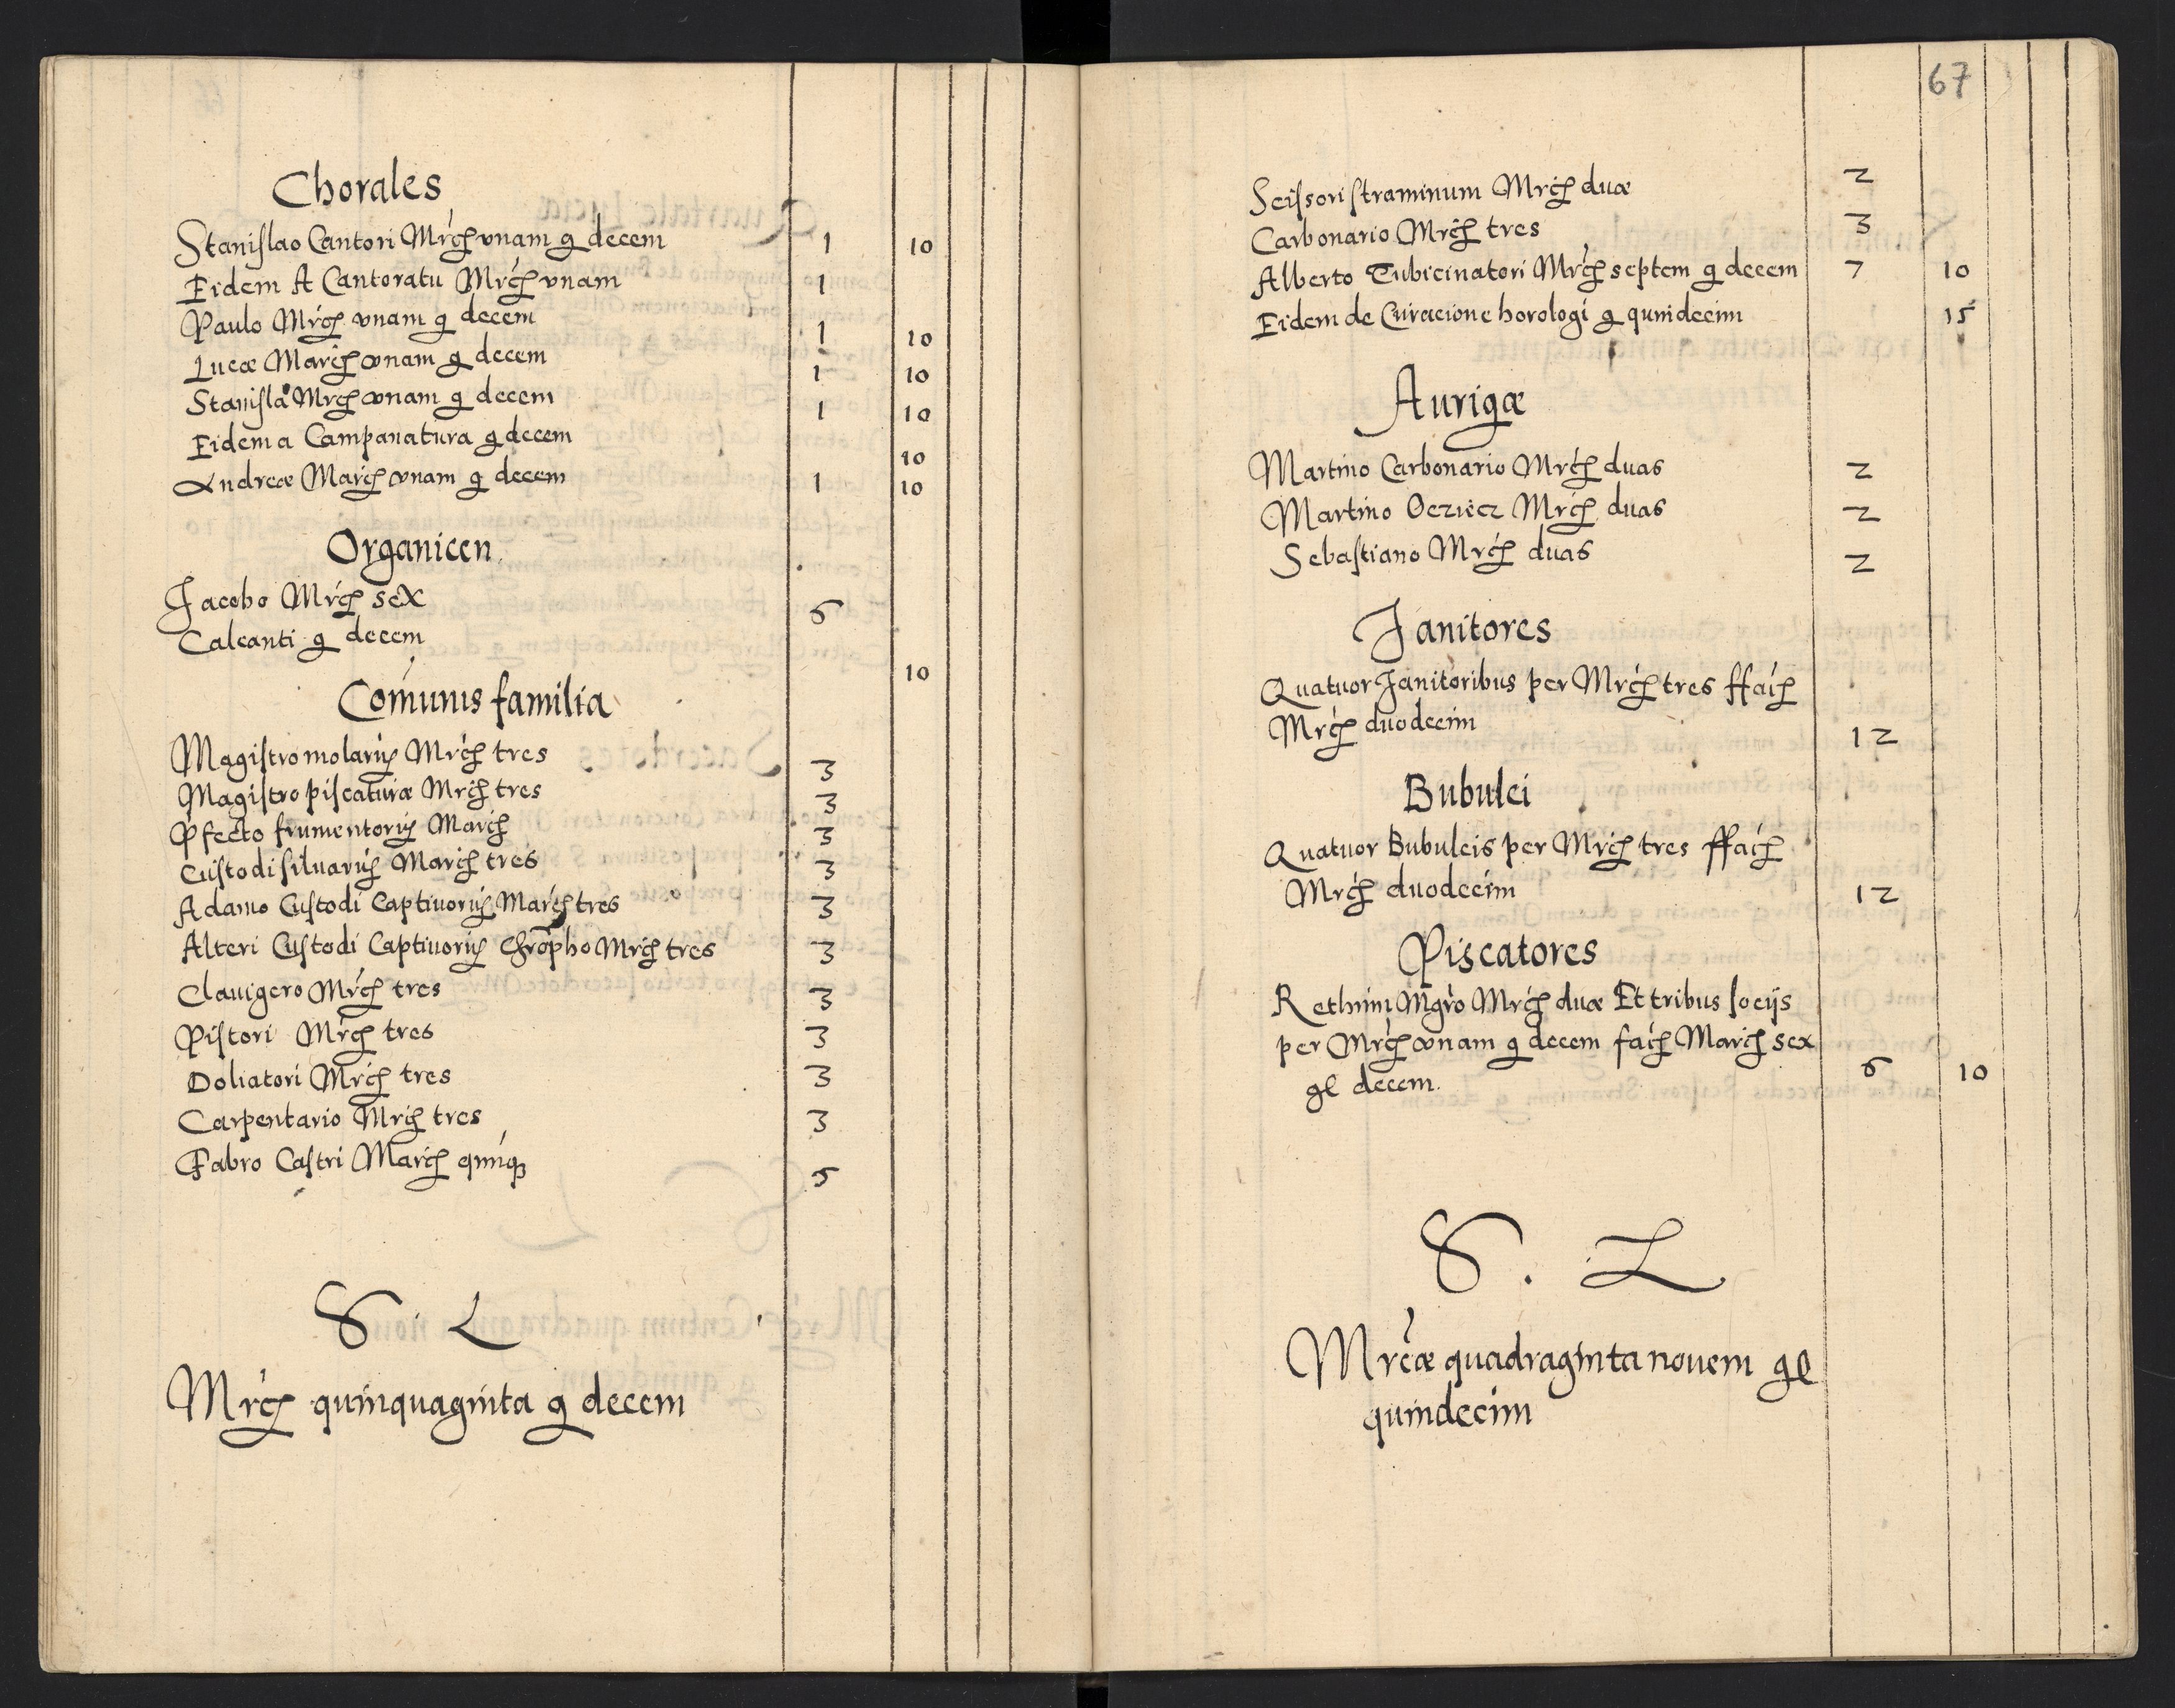 Chorales
Stanislao Cantori Mrc̃ vnam g decem 1 10
Eidem A Cantoratu Mrc̃ vnam 1
Paulo Mrc̃ vnam g decem 1 10
Lucæ Marc̃ vnam g decem 1 10
Stanislao Mrc̃ vnam g decem 1 10
Eidem a Campanatura g decem 10
Andreæ Marc̃ vnam g decem 1 10
Organicen
Jacobo Mrc̃ sex 6
Calcanti g decem 10
Comunis familia
Magistro molarıꝝ Mrc̃ tres 3
Magistro piscaturæ Mrc̃ tres 3
Pfecto frumentorıꝝ Marc̃ 3
Custodi siluarıꝝ Marc̃ tres 3
Adamo Custodi Captiuorıꝝ Marc̃ tres 3
Alteri Custodi Captiuorıꝝ Chrõpho Mrc̃ tres 3
Clauigero Mrc̃ tres 3
Pistori Mrc̃ tres 3
Doliatori Mrc̃ tres 3
Carpentario Mrc̃ tres 3
Fabro Castri Marc̃ quinqꝫ 5
S. L
Mrc̃ quinquaginta g decem
67
Scissori straminum Mrc̃ duæ 2
Carbonario Mrc̃ tres 3
Alberto Tubicinatori Mrc̃ septem g decem 7 10
Eidem de Curacione horologi g quindecim 15
Aurigæ
Martino Carbonario Mrc̃ duas 2
Martino Oczӱecz Mrc̃ duas 2
Sebastiano Mrc̃ duas 2
Janitores
Quatuor Janitoribus per Mrc̃ tres ffac̃
Mrc̃ duodecim 12
Bubulci
Quatuor Bubulcis per Mrc̃ tres ffac̃
Mrc̃ duodecim 12
Piscatores
Rethnim Mgro Mrc̃ duæ Et tribus socijs
per Mrc̃ vnam g decem fac̃ Marc̃ sex
gl decem. 6 10
S. L
Mrcæ quadraginta nouem gl
quindecim